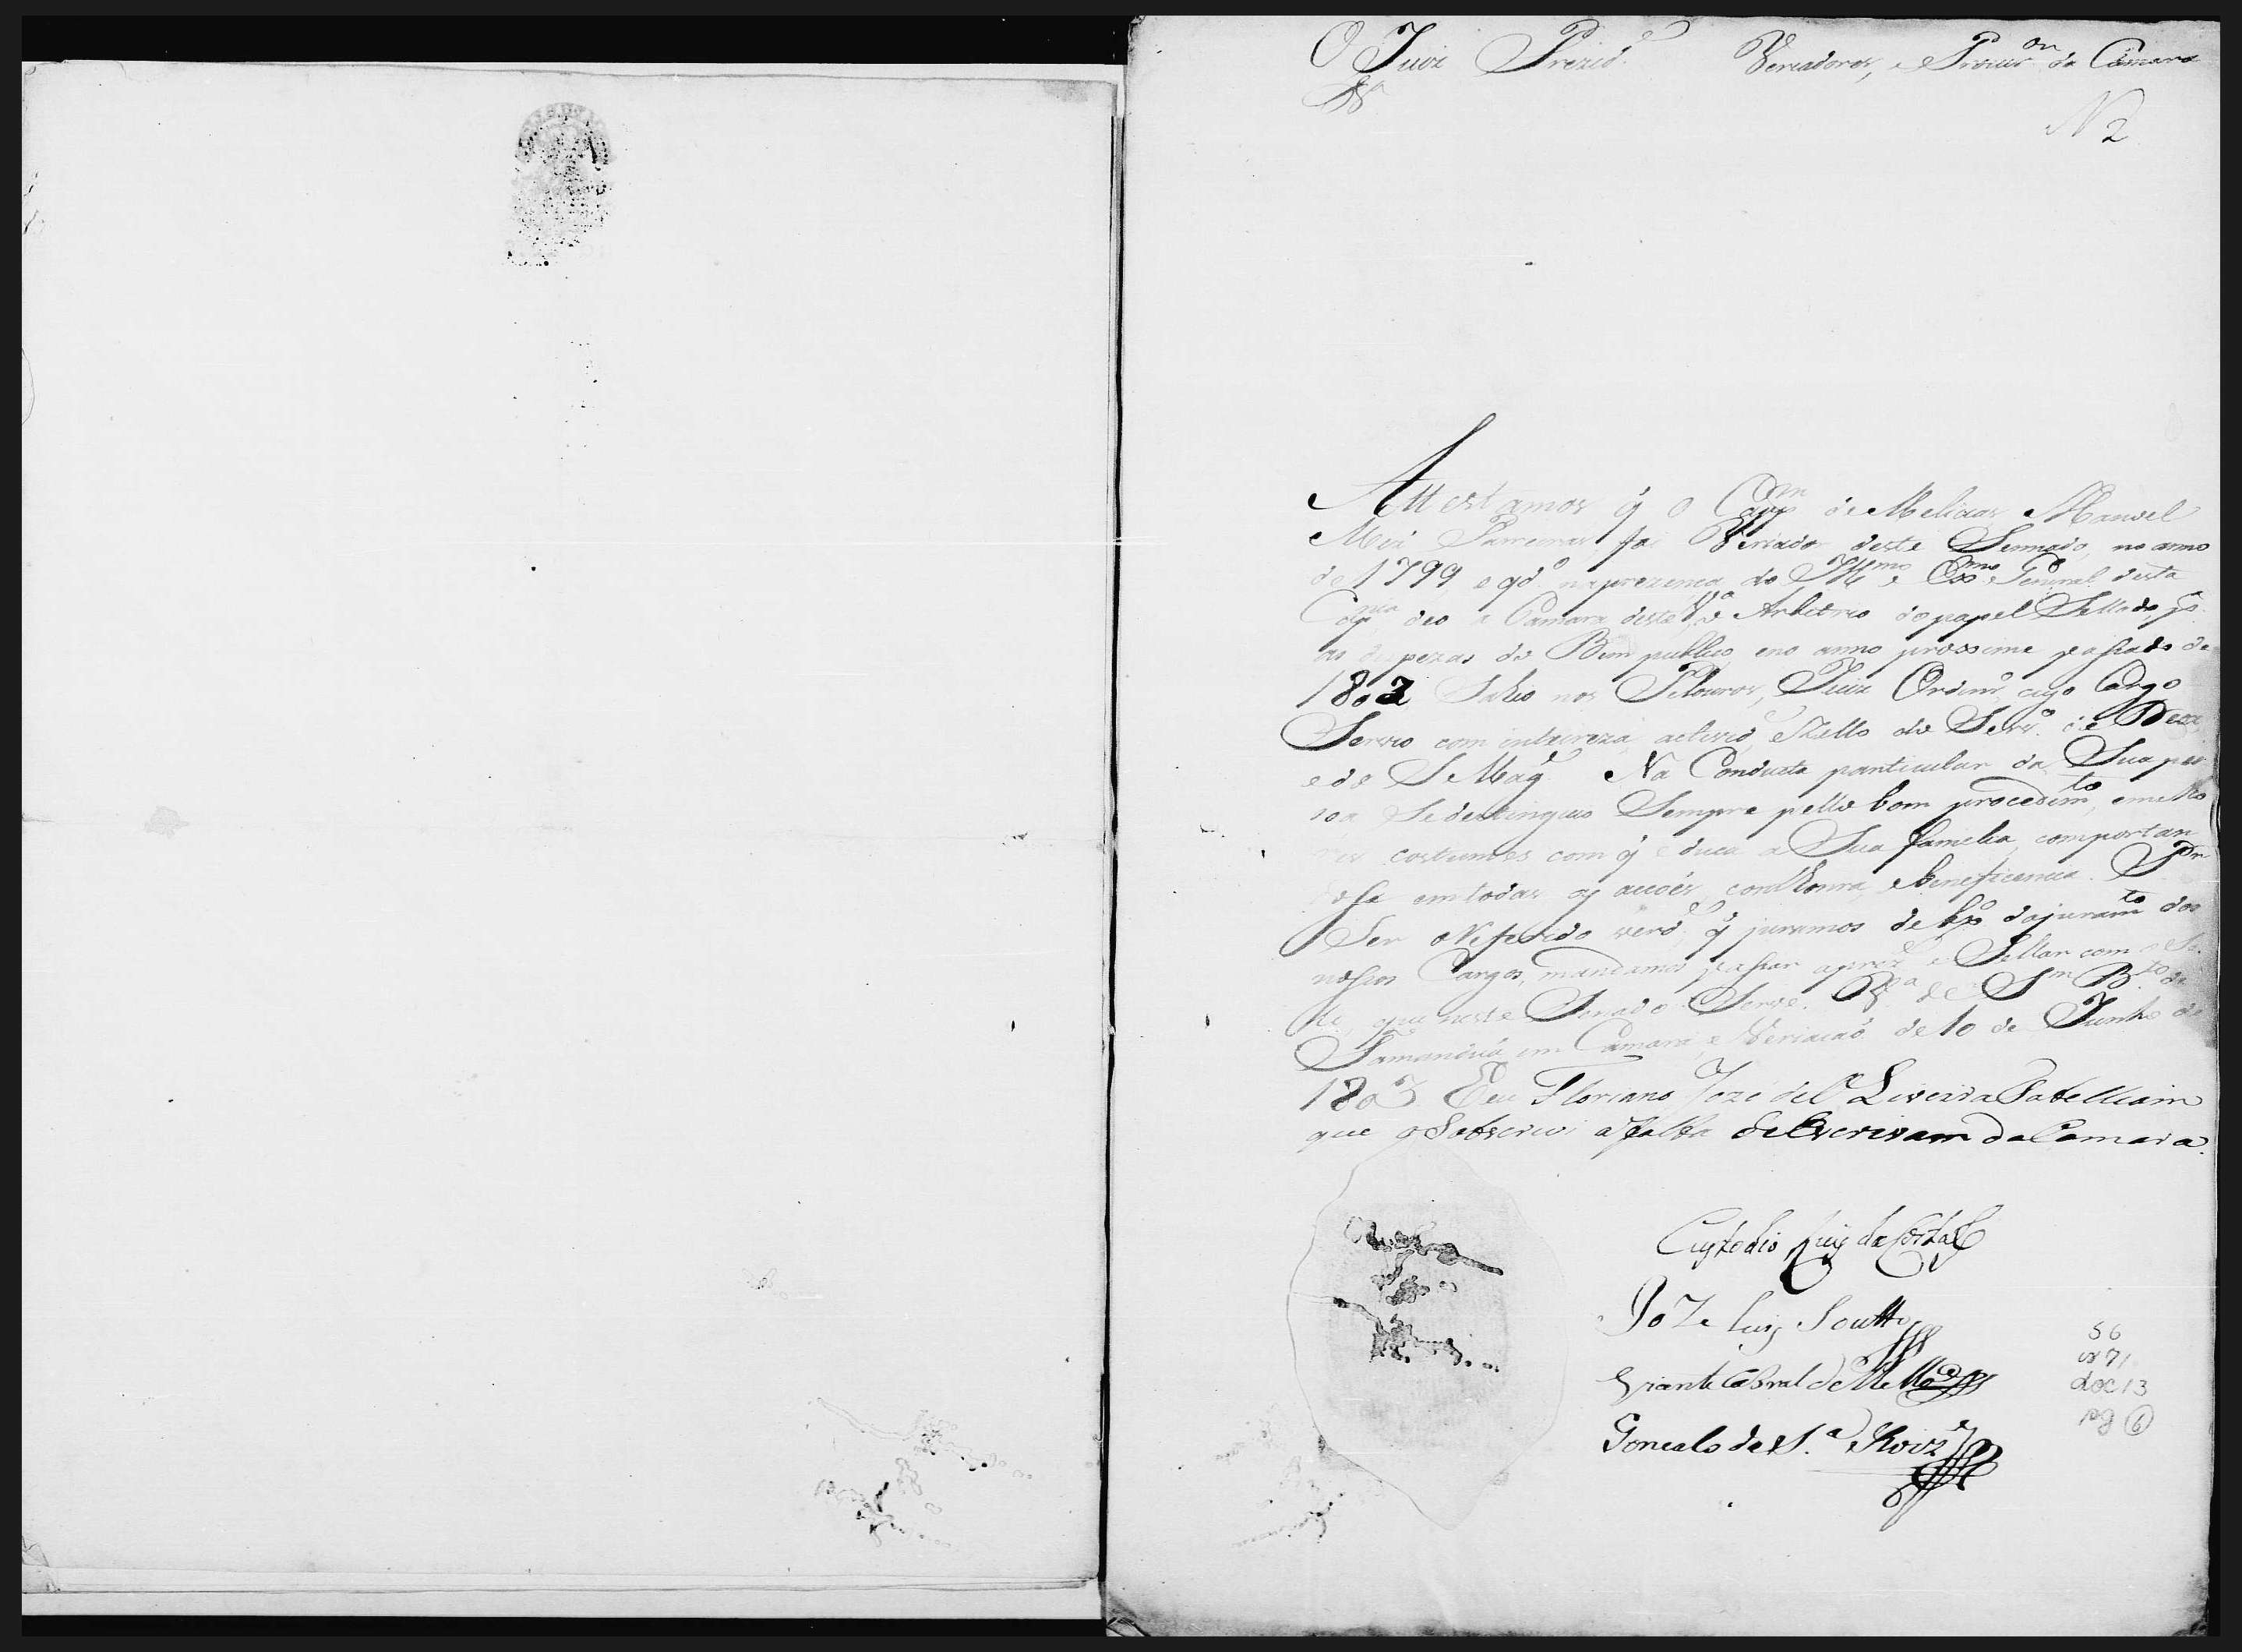 O Juiz Prezid.e Veriadores, e Procur.or da Camara
N 2
Attestamos q̃ o Cap.m de Melicias Manoel
Miz Parreiras foi Veriador deste Sennado, no anno
de 1799, e qd.o na prezenca do Ill.mo e Ex.mo General desta
Cap.nia deo a Camara desta V.a o Arbitrio do papel Sellado p.a
as despezas do Bem publico eno anno proximo passado de
1802 Sahio nos Pelouros, Juiz Ordin.o cujo Cargo
Servio com inteireza, activid.e e Zello do Serv.o de Deos,
e de S Mag.e Na Conducta particular da Sua pes
soa Se destinguio Sempre pello bom procedim.to, emelho
res costumes com q̃ educa a Sua familia, comportan
dosse emtodas as accóes com Honra, e beneficencia. Por
Ser o Referido verd.e q̃ juramos debx.o dojuram.to dos
nossos Cargos, mandamos passar aprez.e e Sellar com o Se
lo que neste Senado Serve. V.a de S.m B.to do
Tamanduá em Camara, e Veriacaõ de 10 de Junho de
1803 Eu Floriano Joze de Oliveira Tabelliam
que o Sobscrivi afalta do Escrivam da Camara.
Custodio Luis da Costa
JoZe Luis Soutto
Griante Cabral de Mello
Goncalo de S.a Roiz
56
cx 71
doc 13
pg 6